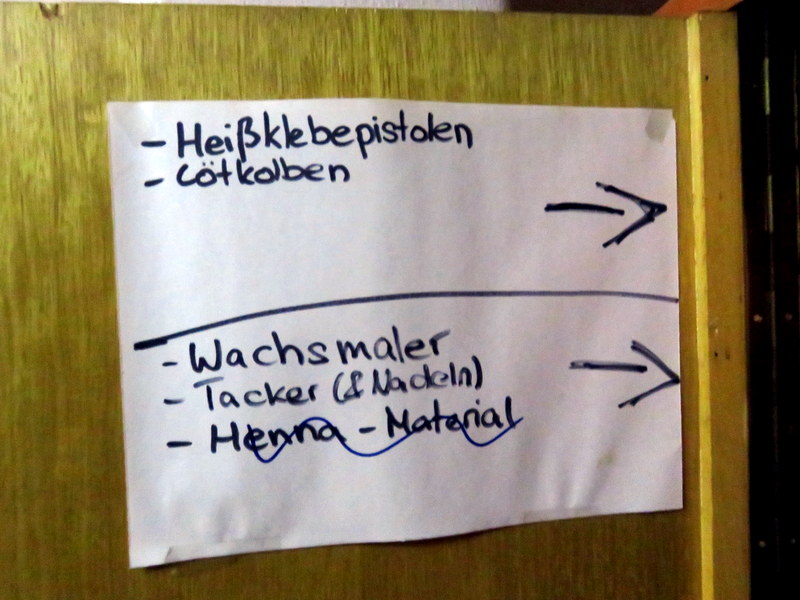 - Heißklebepistolen
- Lötkolben
- Wachsmaler
- Tacker (& Nadeln)
- Henna - Material